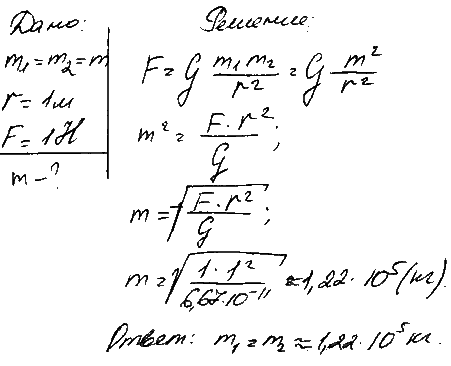 Дано:
m₁ = m₂ = m
r = 1м
F = 1Н
m – ?
Решение:
F = G m₁m₂/r² = G m²/r²
m² = F·r²/G;
m = √(F·r²/G);
m = √(1·1²/6,67·10⁻¹¹) ≈ 1,22·10⁵ (кг).
Ответ: m₁ = m₂ ≈ 1,22·10⁵ кг.